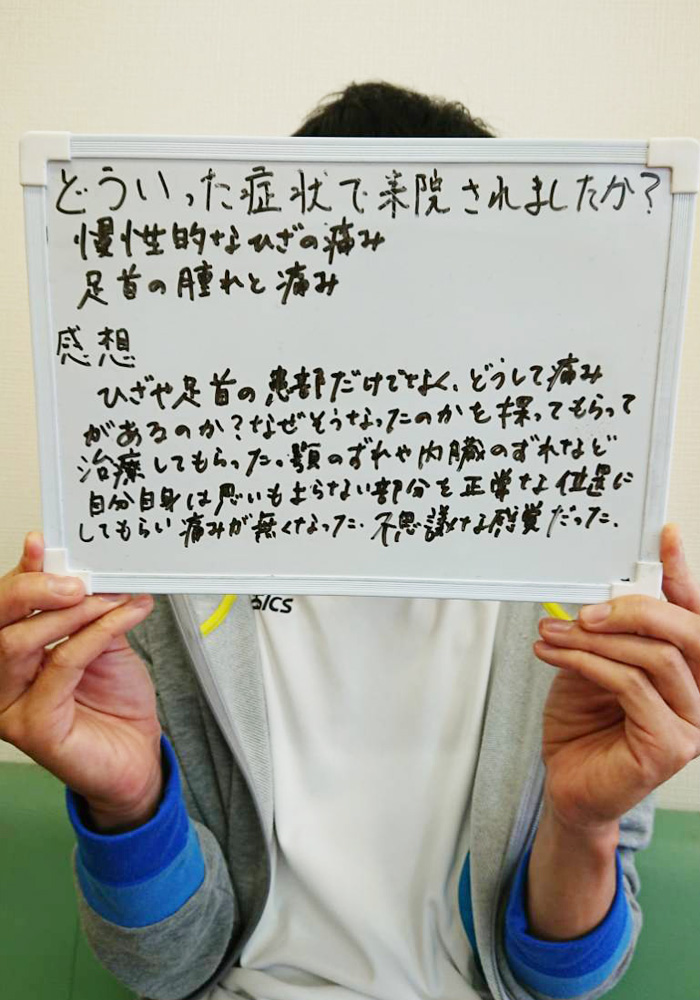 どういった症状で来院されましたか?
慢性的なひざの痛み
足首の腫れと痛み
感想
ひざや足首の患部だけでなく、どうして痛み
があるのか?なぜそうなったのかを探ってもらって
治療してもらった。顎のずれや内臓のずれなど
自分自身は思いもよらない部分を正常な位置に
してもらい痛みが無くなった。不思議な感覚だった。
ICS